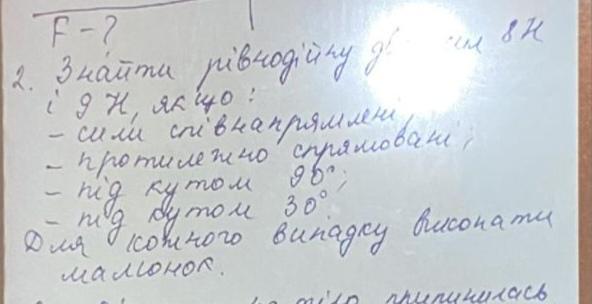 F - ?
2. Знайти рівнодійну 8 Н
і 9 Н, якщо:
- сили співнапрямлені,
- протилежно спрямовані;
- під кутом 90°;
- під кутом 30°
Для кожного випадку виконати
малюнок.
тіло припинилась